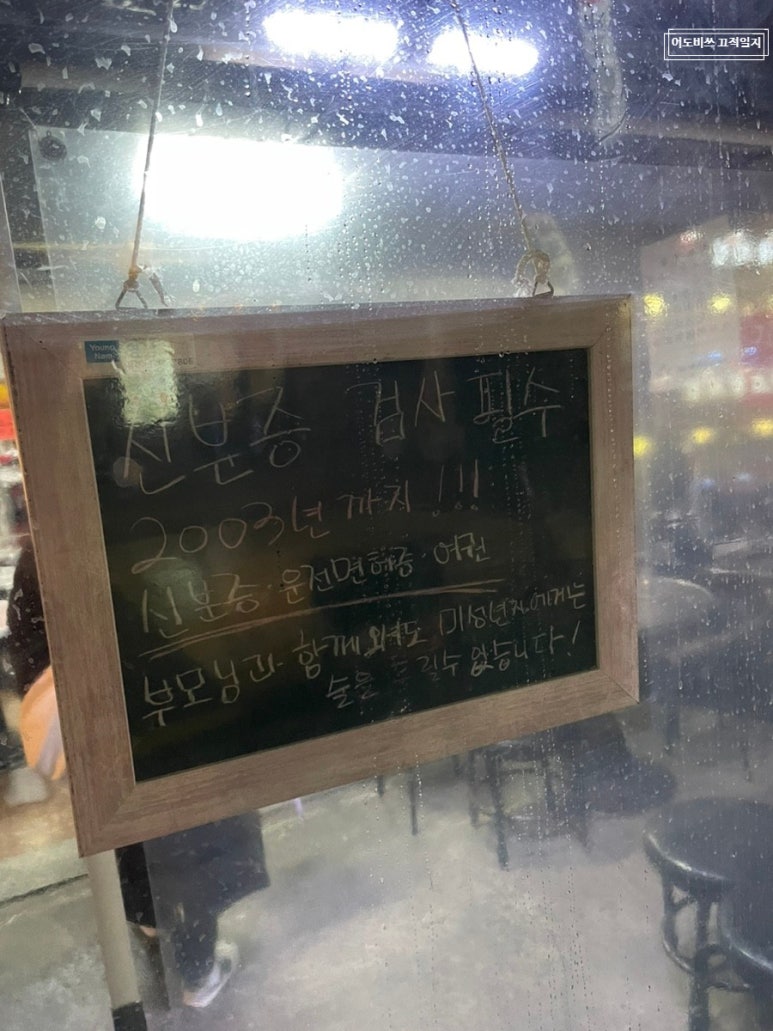 어도비쓰 끄적일지
Young
Nam
신분증 검사 필수
2003년 까지 !!!
신분증·운전면허증·여권
부모님과 함께 와도 미성년자에게는
술을 드릴수 없습니다!